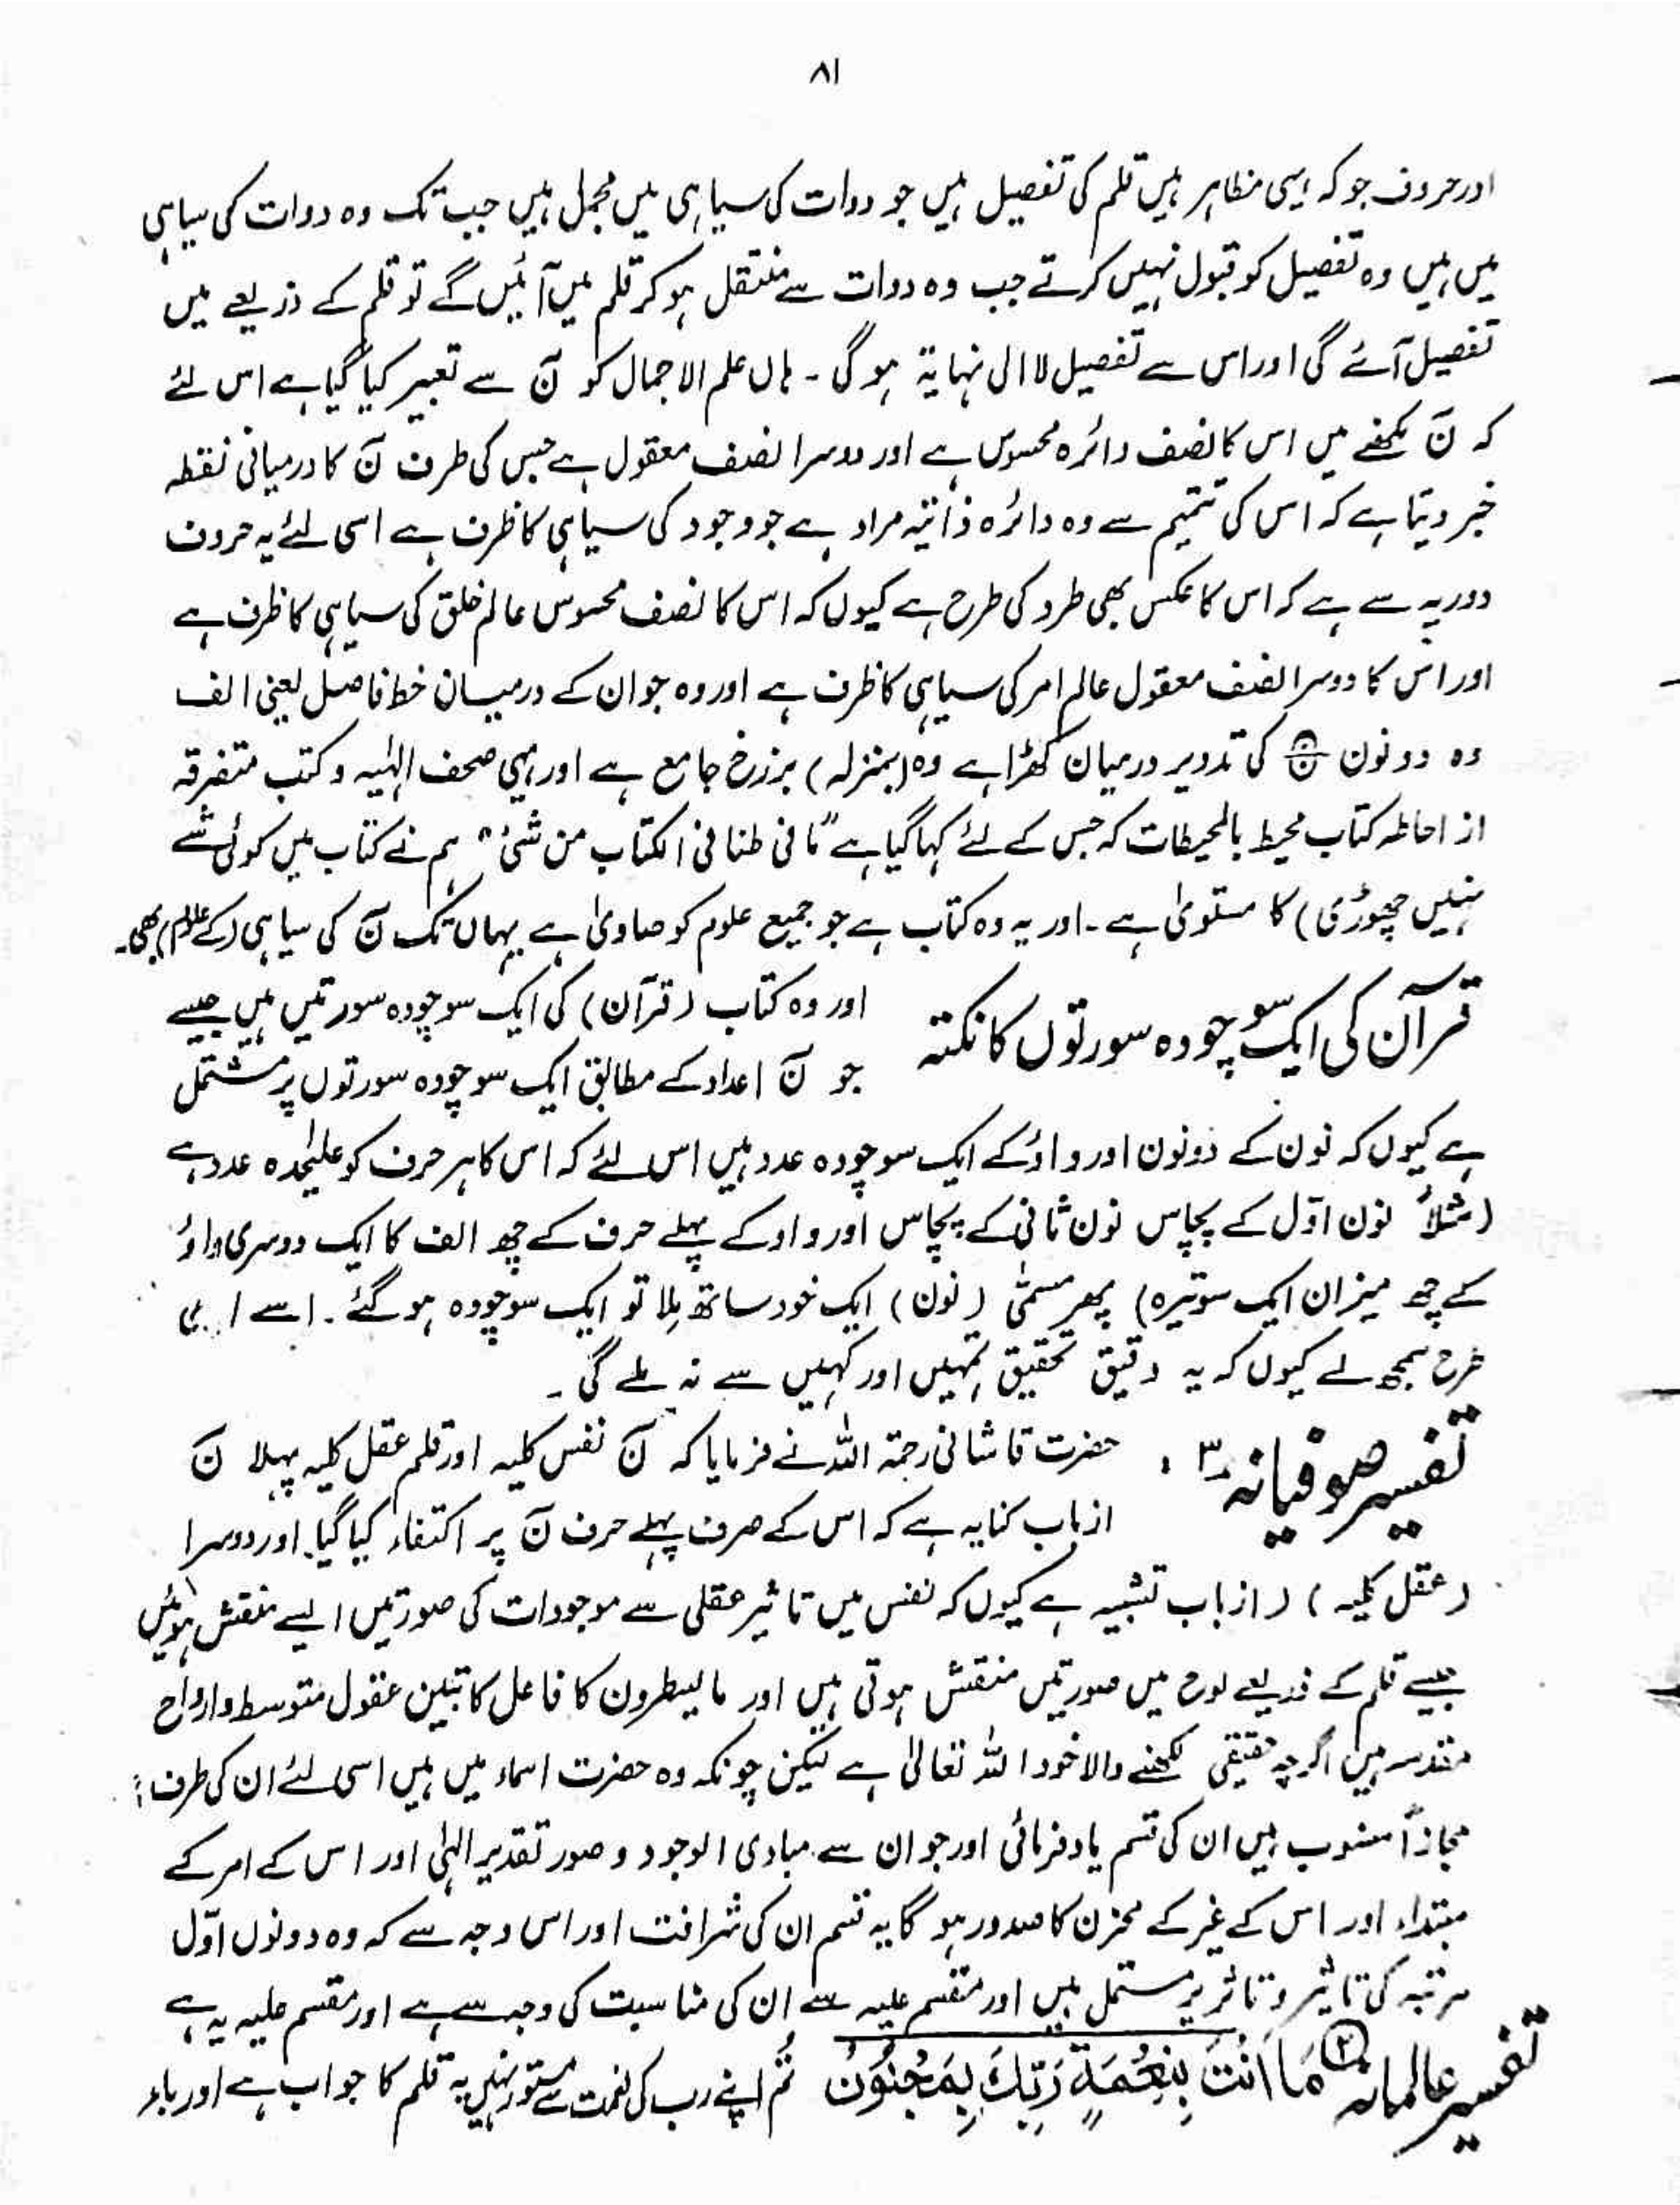 ۸۱
اور حروف جو کہ اسی مظاہر ہیں قلم کی تفصیل ہیں جو دوات کی سیاہی میں مجمل ہیں جب تک وہ دوات کی سیاہی
میں ہیں وہ تفصیل کو قبول نہیں کرتے جب وہ دوات سے منتقل ہو کر قلم میں آئیں گے تو قلم کے ذریعے میں
تفصیل آئے گی اور اس سے تفصیل لا الی نہایۃ ہو گی ۔ ہاں علم الاجمال کو نٓ سے تعبیر کیا گیا ہے اس لئے
کہ نٓ لکھنے میں اس کا نصف دائرہ محسوس ہے اور دوسرا نصف معقول ہے جس کی طرف نٓ کا درمیانی نقطہ
خبر دیتا ہے کہ اس کی تتمیم سے وہ دائرہ ذاتیہ مراد ہے جو وجود کی سیاہی کا ظرف ہے اسی لئے یہ حروف
دوریہ سے ہے کہ اس کا عکس بھی طرد کی طرح ہے کیوں کہ اس کا نصف محسوس عالم خلق کی سیاہی کا ظرف ہے
اور اس کا دوسرا نصف معقول عالم امر کی سیاہی کا ظرف ہے اور وہ جو ان کے درمیان خط فاصل یعنی الف
وہ دو نون کی تدویر درمیان کھڑا ہے وہ (بمنزلہ) برزخ جامع ہے اور یہی صحف الہٰیہ و کتب متفرقہ
از احاطہ کتاب محیط بالمحیطات کہ جس کے لئے کہا گیا ہے ”ما فی طنا فی الکتاب من شئ“ ہم نے کتاب میں کوئی شے
نہیں چھوڑی) کا مستویٰ ہے ۔ اور یہ وہ کتاب ہے جو جمیع علوم کو حاویٰ ہے یہاں تک نٓ کی سیاہی (کے علوم) بھی۔
قرآن کی ایک سو چودہ سورتوں کا نکتہ
اور وہ کتاب (قرآن) کی ایک سو چودہ سورتیں ہیں جیسے
جو نٓ اعداد کے مطابق ایک سو چودہ سورتوں پر مشتمل
ہے کیوں کہ نون کے دو نون اور واؤ کے ایک سو چودہ عدد ہیں اس لئے کہ اس کا ہر حرف کو علیٰحدہ عدد ہے
(مثلاً نون اوّل کے پچاس نون ثانی کے پچاس اور واو کے پہلے حرف کے چھ الف کا ایک دوسری واؤ
کے چھ میزان ایک سو تیرہ) پھر مسمّٰی (نون) ایک خود ساتھ ملا تو ایک سو چودہ ہو گئے ۔ اسے
طرح سمجھ لے کیوں کہ یہ دقیق تحقیق تمہیں اور کہیں سے نہ ملے گی ۔
تفسیر صوفیانہ ۳
حضرت قاشانی رحمۃ اللہ نے فرمایا کہ نٓ نفس کلیہ اور قلم عقل کلیہ پہلا نٓ
از باب کنایہ ہے کہ اس کے صرف پہلے حرف نٓ پر اکتفاء کیا گیا۔ اور دوسرا
(عقل کلیہ) (از باب تشبیہ ہے کیوں کہ نفس میں تاثیر عقلی سے موجودات کی صورتیں ایسے منقش ہوئیں
جیسے قلم کے ذریعے لوح میں صورتیں منقش ہوتی ہیں اور ما یسطرون کا فاعل کاتبین عقول متوسط و ارواح
مقدسہ ہیں اگرچہ حقیقی لکھنے والا خود اللہ تعالیٰ ہے لیکن چونکہ وہ حضرت اسماء میں ہیں اسی لئے ان کی طرف
مجازاً منسوب ہیں ان کی قسم یاد فرمائی اور جو ان سے مبادی الوجود و صور تقدیر الہٰی اور اس کے امر کے
مبتداء اور اس کے غیر کے مخزن کا صدور ہو گا یہ قسم ان کی شرافت اور اس وجہ سے کہ وہ دونوں اوّل
مرتبہ کی تاثیر و تاثر پر مشتمل ہیں اور مقسم علیہ سے ان کی مناسبت کی وجہ سے ہے اور مقسم علیہ یہ ہے
تفسیر عالمانہ ۲ مَا اَنْتَ بِنِعْمَۃِ رَبِّكَ بِمَجْنُوْنٍ تم اپنے رب کی نعمت سے مستور نہیں یہ قلم کا جواب ہے اور باء